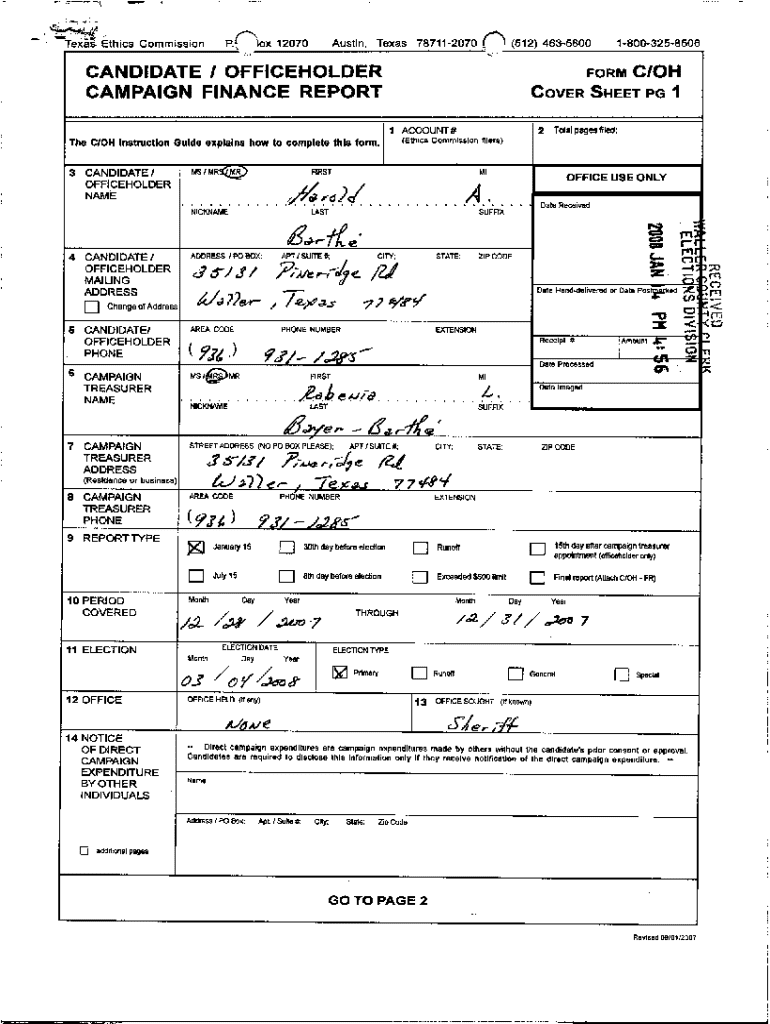 Texas Ethics Commission P. Box 12070 Austin, Texas 78711-2070 (512) 463-5800 1-800-325-8506
CANDIDATE / OFFICEHOLDER
CAMPAIGN FINANCE REPORT
FORM C/OH
COVER SHEET PG 1
The C/OH Instruction Guide explains how to complete this form.
1 ACCOUNT #
(Ethics Commission filers)
2 Total pages filed:
3 CANDIDATE /
OFFICEHOLDER
NAME
MS / MRS / MR FIRST MI
Harold A.
NICKNAME LAST SUFFIX
Barthe
OFFICE USE ONLY
Date Received
RECEIVED
WALLER COUNTY CLERK
ELECTIONS DIVISION
2008 JAN 14 PM 4:56
Date Hand-delivered or Date Postmarked
Receipt # Amount
Date Processed
Date Imaged
4 CANDIDATE /
OFFICEHOLDER
MAILING
ADDRESS
Change of Address
ADDRESS / PO BOX; APT / SUITE #; CITY; STATE; ZIP CODE
35131 Pineridge Rd
Waller, Texas 77484
5 CANDIDATE/
OFFICEHOLDER
PHONE
AREA CODE PHONE NUMBER EXTENSION
(936) 931-1285
6 CAMPAIGN
TREASURER
NAME
MS / MRS / MR FIRST MI
L.
NICKNAME LAST SUFFIX
Boyer - Barthe
7 CAMPAIGN
TREASURER
ADDRESS
(Residence or business)
STREET ADDRESS (NO PO BOX PLEASE); APT / SUITE #; CITY; STATE; ZIP CODE
35131 Pineridge Rd
Waller, Texas 77484
8 CAMPAIGN
TREASURER
PHONE
AREA CODE PHONE NUMBER EXTENSION
(936) 931-1285
9 REPORT TYPE
January 15 30th day before election Runoff 15th day after campaign treasurer
appointment (officeholder only)
July 15 8th day before election Exceeded $500 limit Final report (Attach C/OH - FR)
10 PERIOD
COVERED
Month Day Year THROUGH Month Day Year
12 / 28 / 2007 12 / 31 / 2007
11 ELECTION
ELECTION DATE
Month Day Year
03 / 04 / 2008
ELECTION TYPE
Primary Runoff General Special
12 OFFICE
OFFICE HELD (if any)
None
13 OFFICE SOUGHT (if known)
Sheriff
14 NOTICE
OF DIRECT
CAMPAIGN
EXPENDITURE
BY OTHER
INDIVIDUALS
additional pages
-- Direct campaign expenditures are campaign expenditures made by others without the candidate's prior consent or approval.
Candidates are required to disclose this information only if they receive notification of the direct campaign expenditure. --
Name
Address / PO Box; Apt. / Suite #; City; State; Zip Code
GO TO PAGE 2
Revised 09/01/2007